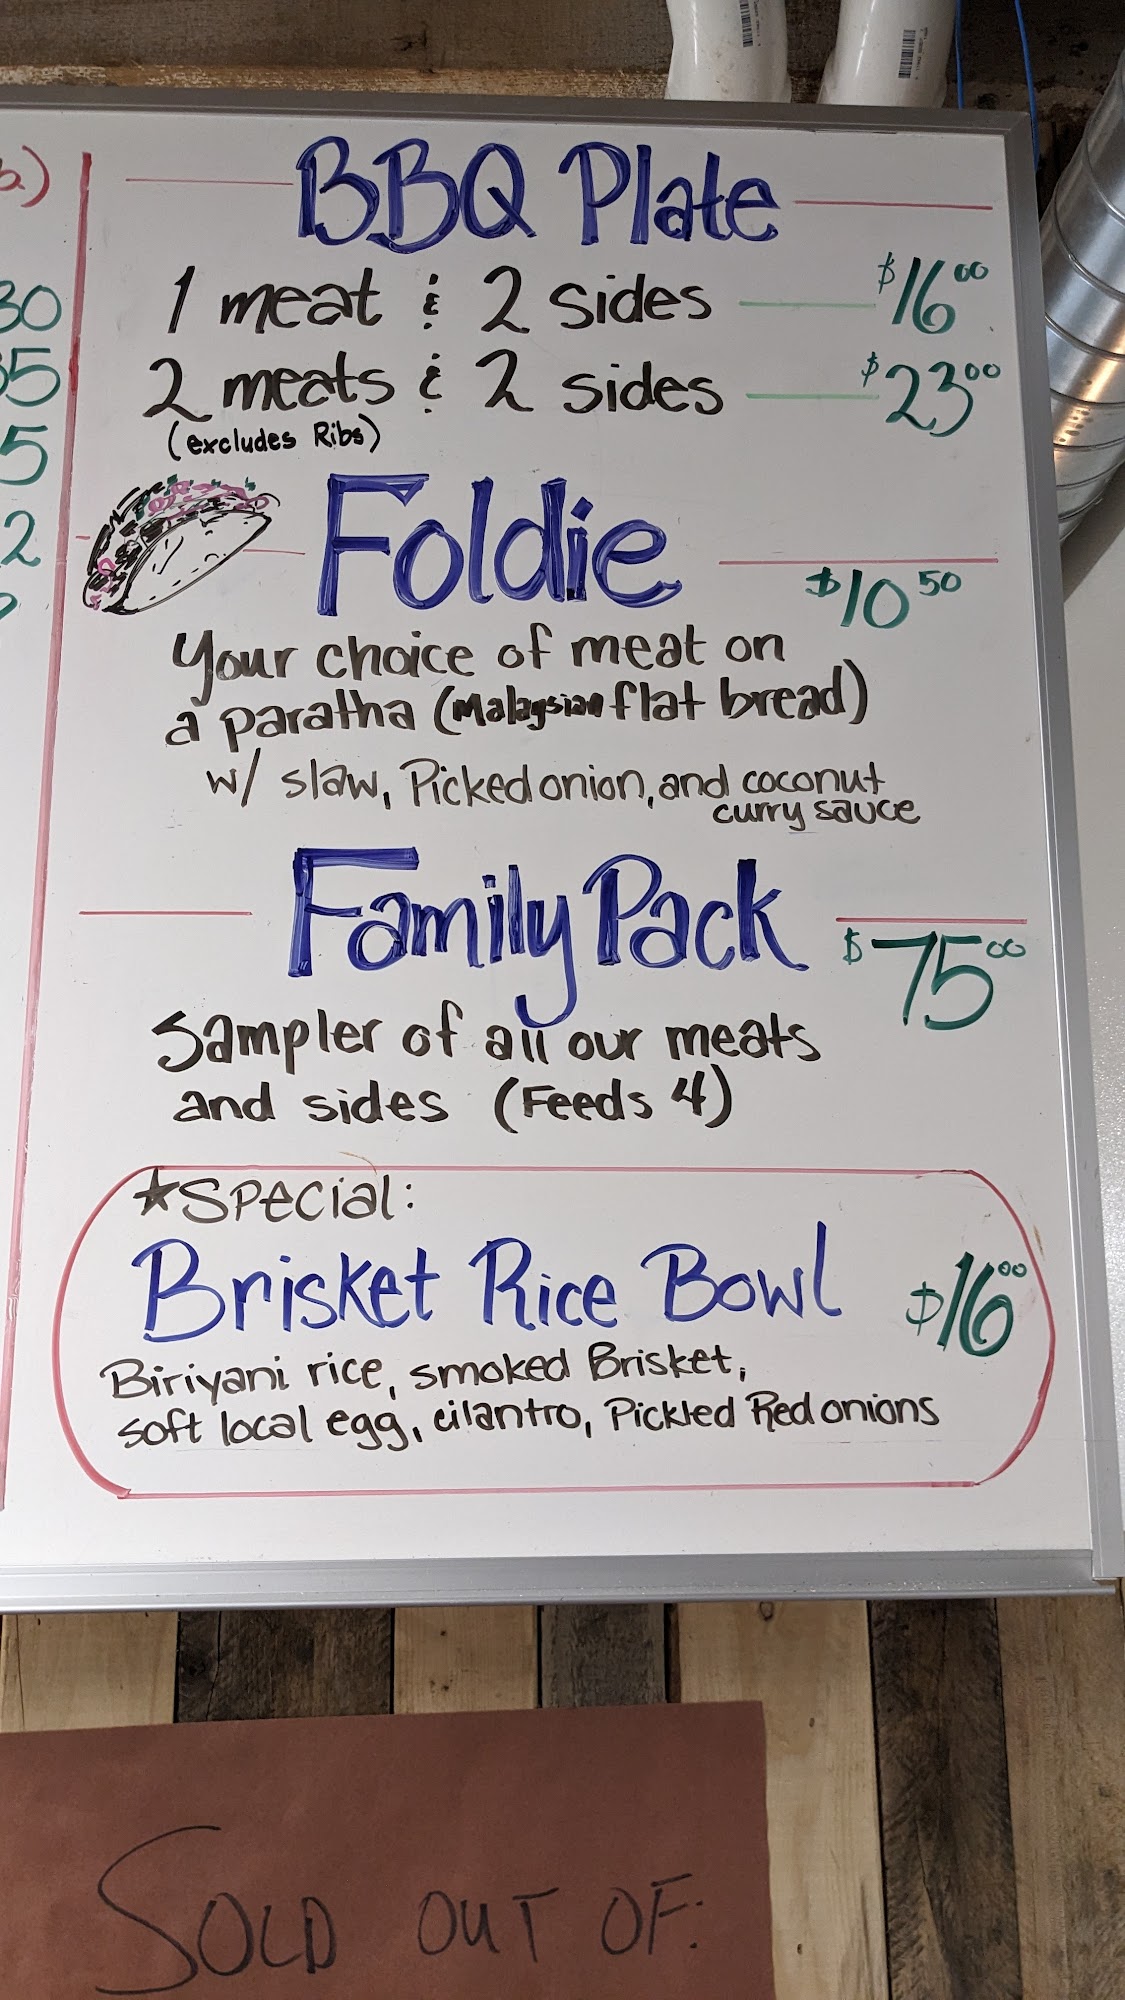 BBQ Plate
1 meat & 2 sides $16.00
2 meats & 2 sides $23.00
(excludes Ribs)
Foldie
$10 50
Your choice of meat on
a paratha (Malaysian flat bread)
w/ slaw, Picked onion, and coconut
curry sauce
Family Pack $75 00
Sampler of all our meats
and sides (Feeds 4)
★Special:
Brisket Rice Bowl $16 00
Biriyani rice, smoked Brisket,
soft local egg, cilantro, Pickled Red onions
SOLD OUT OF: